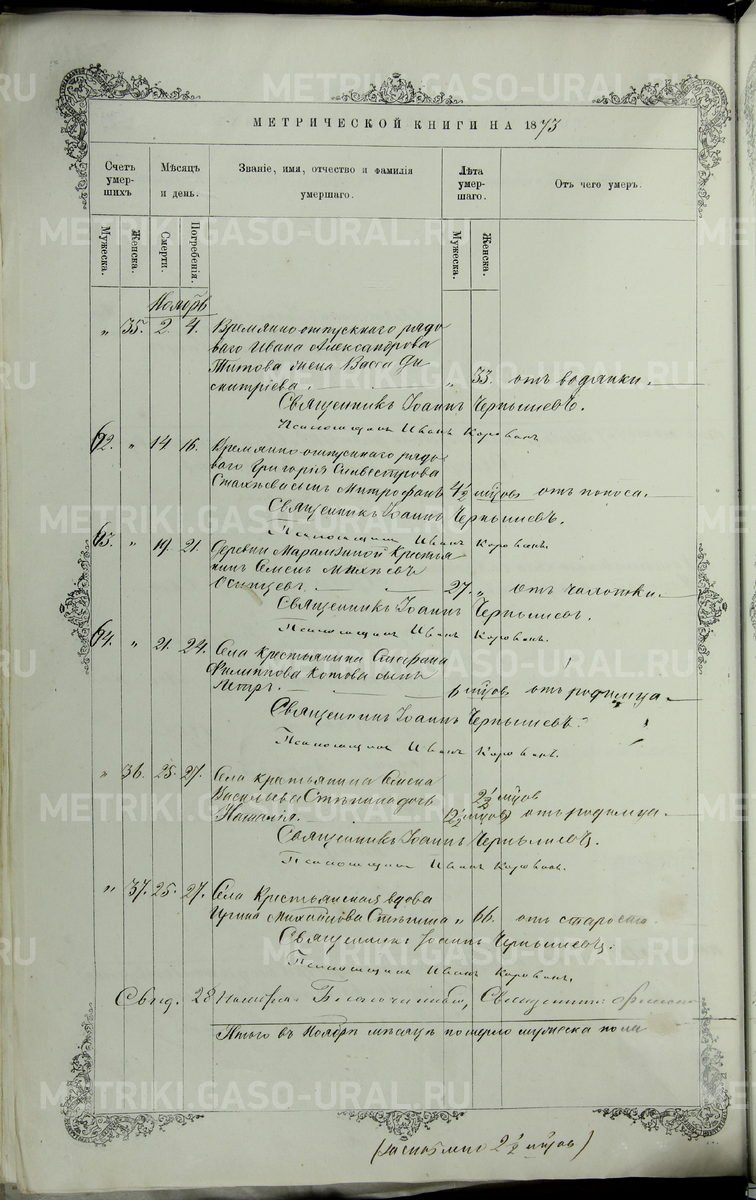 МЕТРИЧЕСКОЙ КНИГИ НА 1873
Счетъ умер-шихъ
Мѣсяцъ и день.
Званіе, имя, отчество и фамилія умершаго.
Лѣта умер-шаго.
Отъ чего умеръ.
Мужеска.
Женска.
Смерти.
Погребенія.
Мужеска.
Женска.
Ноябрь
„ 35. 2. 4. Времянно-отпускнаго рядо
ваго Ивана Александрова
Титова жена Васса Ди
митріева. „ 33. отъ водянки.
Священникъ Іоаннъ Чернышевъ.
Псаломщикъ Иванъ Коровинъ
62. „ 14 16. Времянно-отпускнаго рядо
ваго Григорія Сильвестрова
сынъ Митрофанъ 4½ мѣцовъ отъ поноса.
Священникъ Іоаннъ Чернышевъ.
Псаломщикъ Иванъ Коровинъ.
63. „ 19. 21. Деревни Марамзиной Крестья
нинъ Семенъ Михѣевъ
Осинцевъ. 27. „ отъ чахотки.
Священникъ Іоаннъ Чернышевъ.
Псаломщикъ Иванъ Коровинъ.
64. „ 21. 24. Села Крестьянина Стефана
Филиппова Котова сынъ
Петръ. 6 мѣцовъ отъ родимца.
Священникъ Іоаннъ Чернышевъ.
Псаломщикъ Иванъ Коровинъ.
„ 36. 25. 27. Села крестьянина Семена
Васильева дочь
2½ мѣцов
Наталія. мѣцовъ отъ родимца.
Священникъ Іоаннъ Чернышевъ.
Псаломщикъ Иванъ Коровинъ.
„ 37. 25. 27. Села Крестьянская вдова
Ирина Михайлова „ 66. отъ старости.
Священникъ Іоаннъ Чернышевъ.
Псаломщикъ Иванъ Коровинъ.
28 Священникъ
Итого въ Ноябрѣ мѣсяцѣ померло мужеска пола
2½ мѣцов)
METRIKI.GASO-URAL.RU